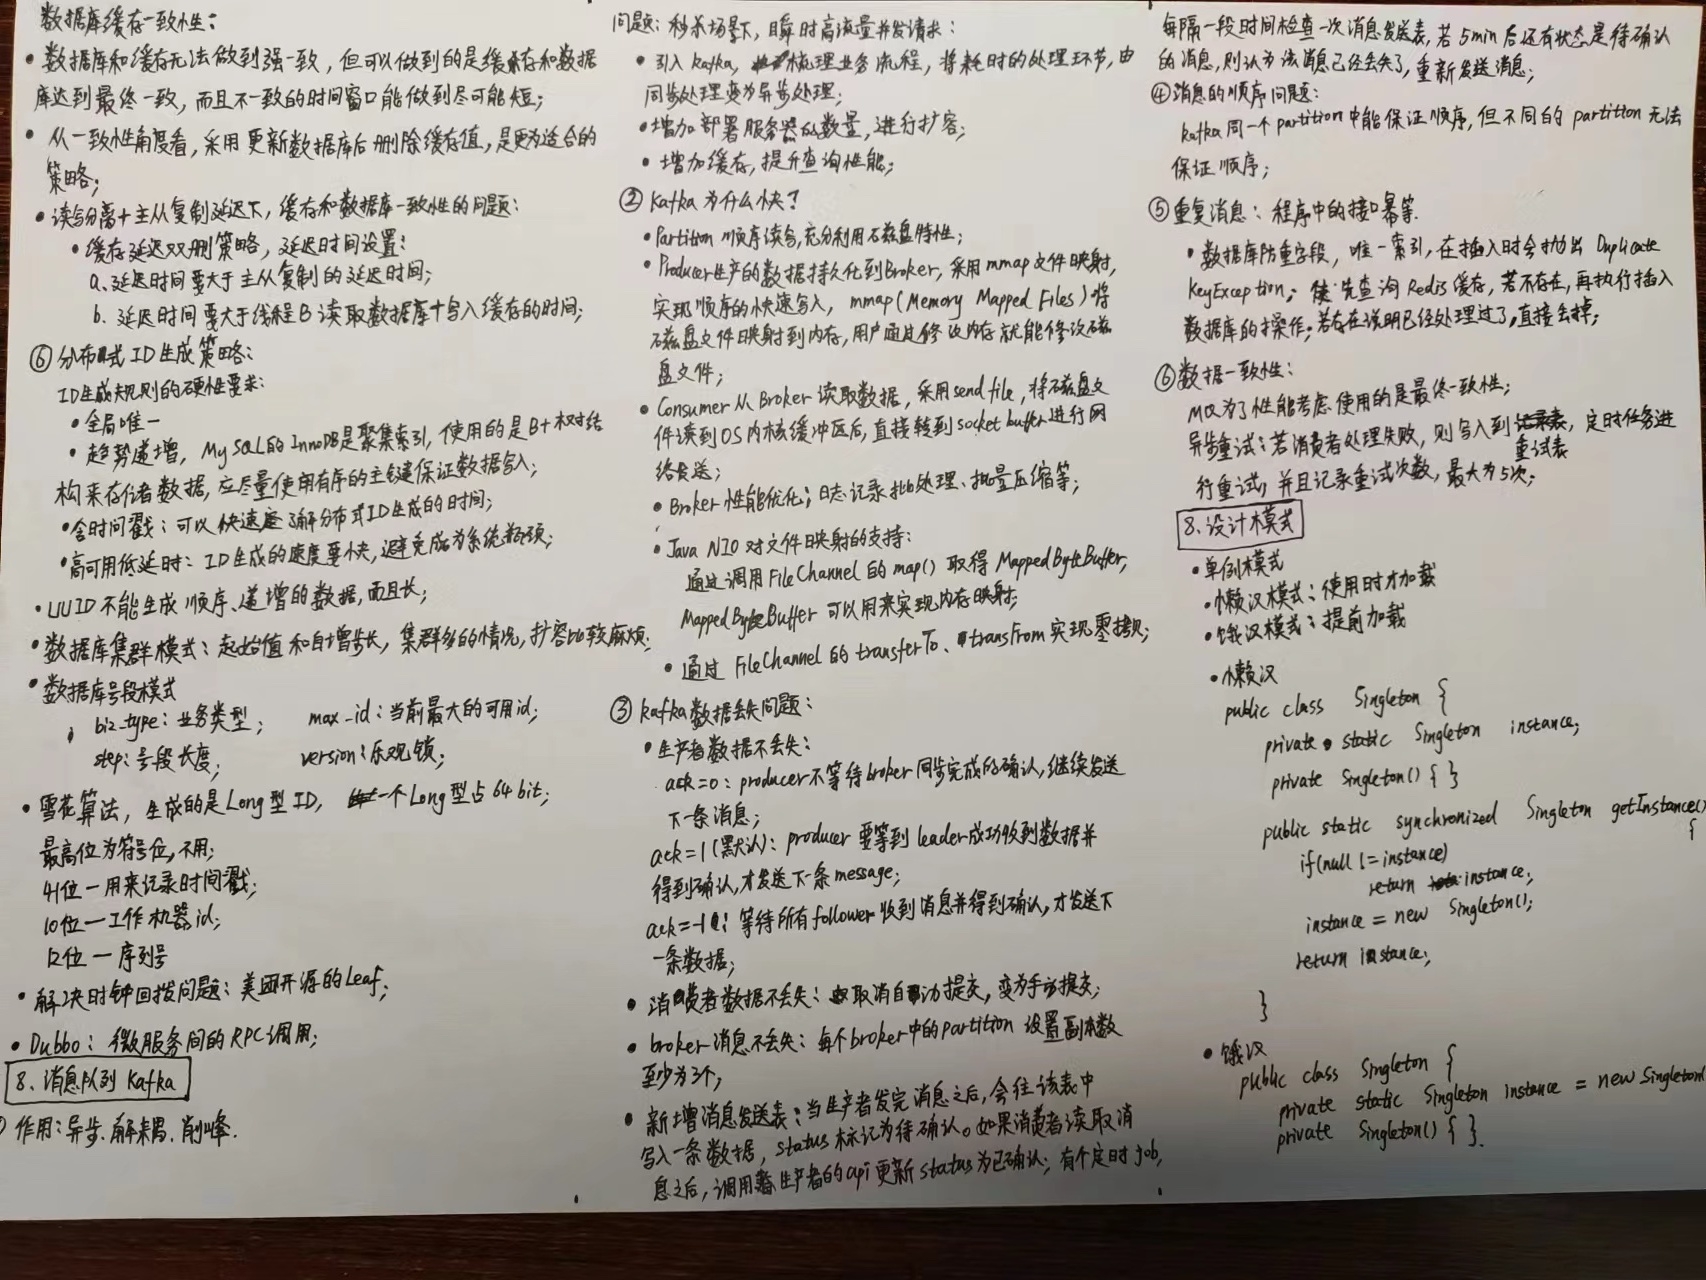 数据库缓存一致性：
• 数据库和缓存无法做到强一致，但可以做到的是缓存和数据
库达到最终一致，而且不一致的时间窗口能做到尽可能短；
• 从一致性角度看，采用更新数据库后删除缓存值，是更为适合的
策略；
• 读写分离+主从复制延迟下，缓存和数据库一致性的问题：
• 缓存延迟双删策略，延迟时间设置：
a、延迟时间要大于主从复制的延迟时间；
b. 延迟时间要大于线程B读取数据库+写入缓存的时间；
⑥ 分布式ID生成策略：
ID生成规则的硬性要求：
• 全局唯一
• 趋势递增，MySQL的InnoDB是聚集索引，使用的是B+树结
构来存储数据，应尽量使用有序的主键保证数据写入；
• 含时间戳：可以快速了解分布式ID生成的时间；
• 高可用低延时：ID生成的速度要快，避免成为系统瓶颈；
• UUID不能生成顺序、递增的数据，而且长；
• 数据库集群模式：起始值和自增步长，集群多的情况，扩容比较麻烦；
• 数据库号段模式
biz_type：业务类型； max_id：当前最大的可用id；
step：号段长度； version：乐观锁；
• 雪花算法，生成的是Long型ID，一个Long型占64bit；
最高位为符号位，不用；
41位—用来记录时间戳；
10位—工作机器id；
12位—序列号
• 解决时钟回拨问题：美团开源的Leaf；
• Dubbo：微服务间的RPC调用；
8、消息队列 Kafka
作用：异步、解耦、削峰．
问题：秒杀场景下，瞬时高流量并发请求：
• 引入kafka，梳理业务流程，将耗时的处理环节，由
同步处理变为异步处理；
• 增加部署服务器的数量，进行扩容；
• 增加缓存，提升查询性能；
② Kafka为什么快？
• Partition顺序读写，充分利用磁盘特性；
• Producer生产的数据持久化到Broker，采用mmap文件映射，
实现顺序的快速写入，mmap(Memory Mapped Files)将
磁盘文件映射到内存，用户通过修改内存就能修改磁
盘文件；
• Consumer从Broker读取数据，采用sendfile，将磁盘文
件读到OS内核缓冲区后，直接转到socket buffer进行网
络发送；
• Broker性能优化：日志记录批处理、批量压缩等；
• Java NIO对文件映射的支持：
通过调用FileChannel的map()取得MappedByteBuffer，
MappedByteBuffer可以用来实现内存映射；
• 通过FileChannel的transferTo、transFrom实现零拷贝；
③ kafka数据丢失问题：
• 生产者数据不丢失：
ack=0：producer不等待broker同步完成的确认，继续发送
下一条消息；
ack=1(默认)：producer要等到leader成功收到数据并
得到确认，才发送下一条message；
ack=-1：等待所有follower收到消息并得到确认，才发送下
一条数据；
• 消费者数据不丢失：取消自动提交，变为手动提交；
• broker消息不丢失：每个broker中的partition设置副本数
至少为3个；
• 新增消息发送表：当生产者发完消息之后，会往该表中
写入一条数据，status标记为待确认。如果消费者读取消
息之后，调用生产者的api更新status为已确认；有个定时job，
每隔一段时间检查一次消息发送表，若5min后还有状态是待确认
的消息，则认为该消息已经丢失了，重新发送消息；
④ 消息的顺序问题：
kafka同一个partition中能保证顺序，但不同的partition无法
保证顺序；
⑤ 重复消息：程序中的接口幂等．
• 数据库防重字段，唯一索引，在插入时会抛出Duplicate
KeyException；先查询Redis缓存，若不存在，再执行插入
数据库的操作；若存在说明已经处理过了，直接丢掉；
⑥ 数据一致性：
MQ为了性能考虑使用的是最终一致性；
异步重试：若消费者处理失败，则写入到重试表，定时任务进
行重试，并且记录重试次数，最大为5次；
8.设计模式
• 单例模式
• 懒汉模式：使用时才加载
• 饿汉模式：提前加载
• 懒汉
public class Singleton {
private static Singleton instance;
private Singleton() { }
public static synchronized Singleton getInstance()
{
if(null != instance)
return instance;
instance = new Singleton();
return instance;
}
• 饿汉
public class Singleton {
private static Singleton instance = new Singleton(
private Singleton() { }.